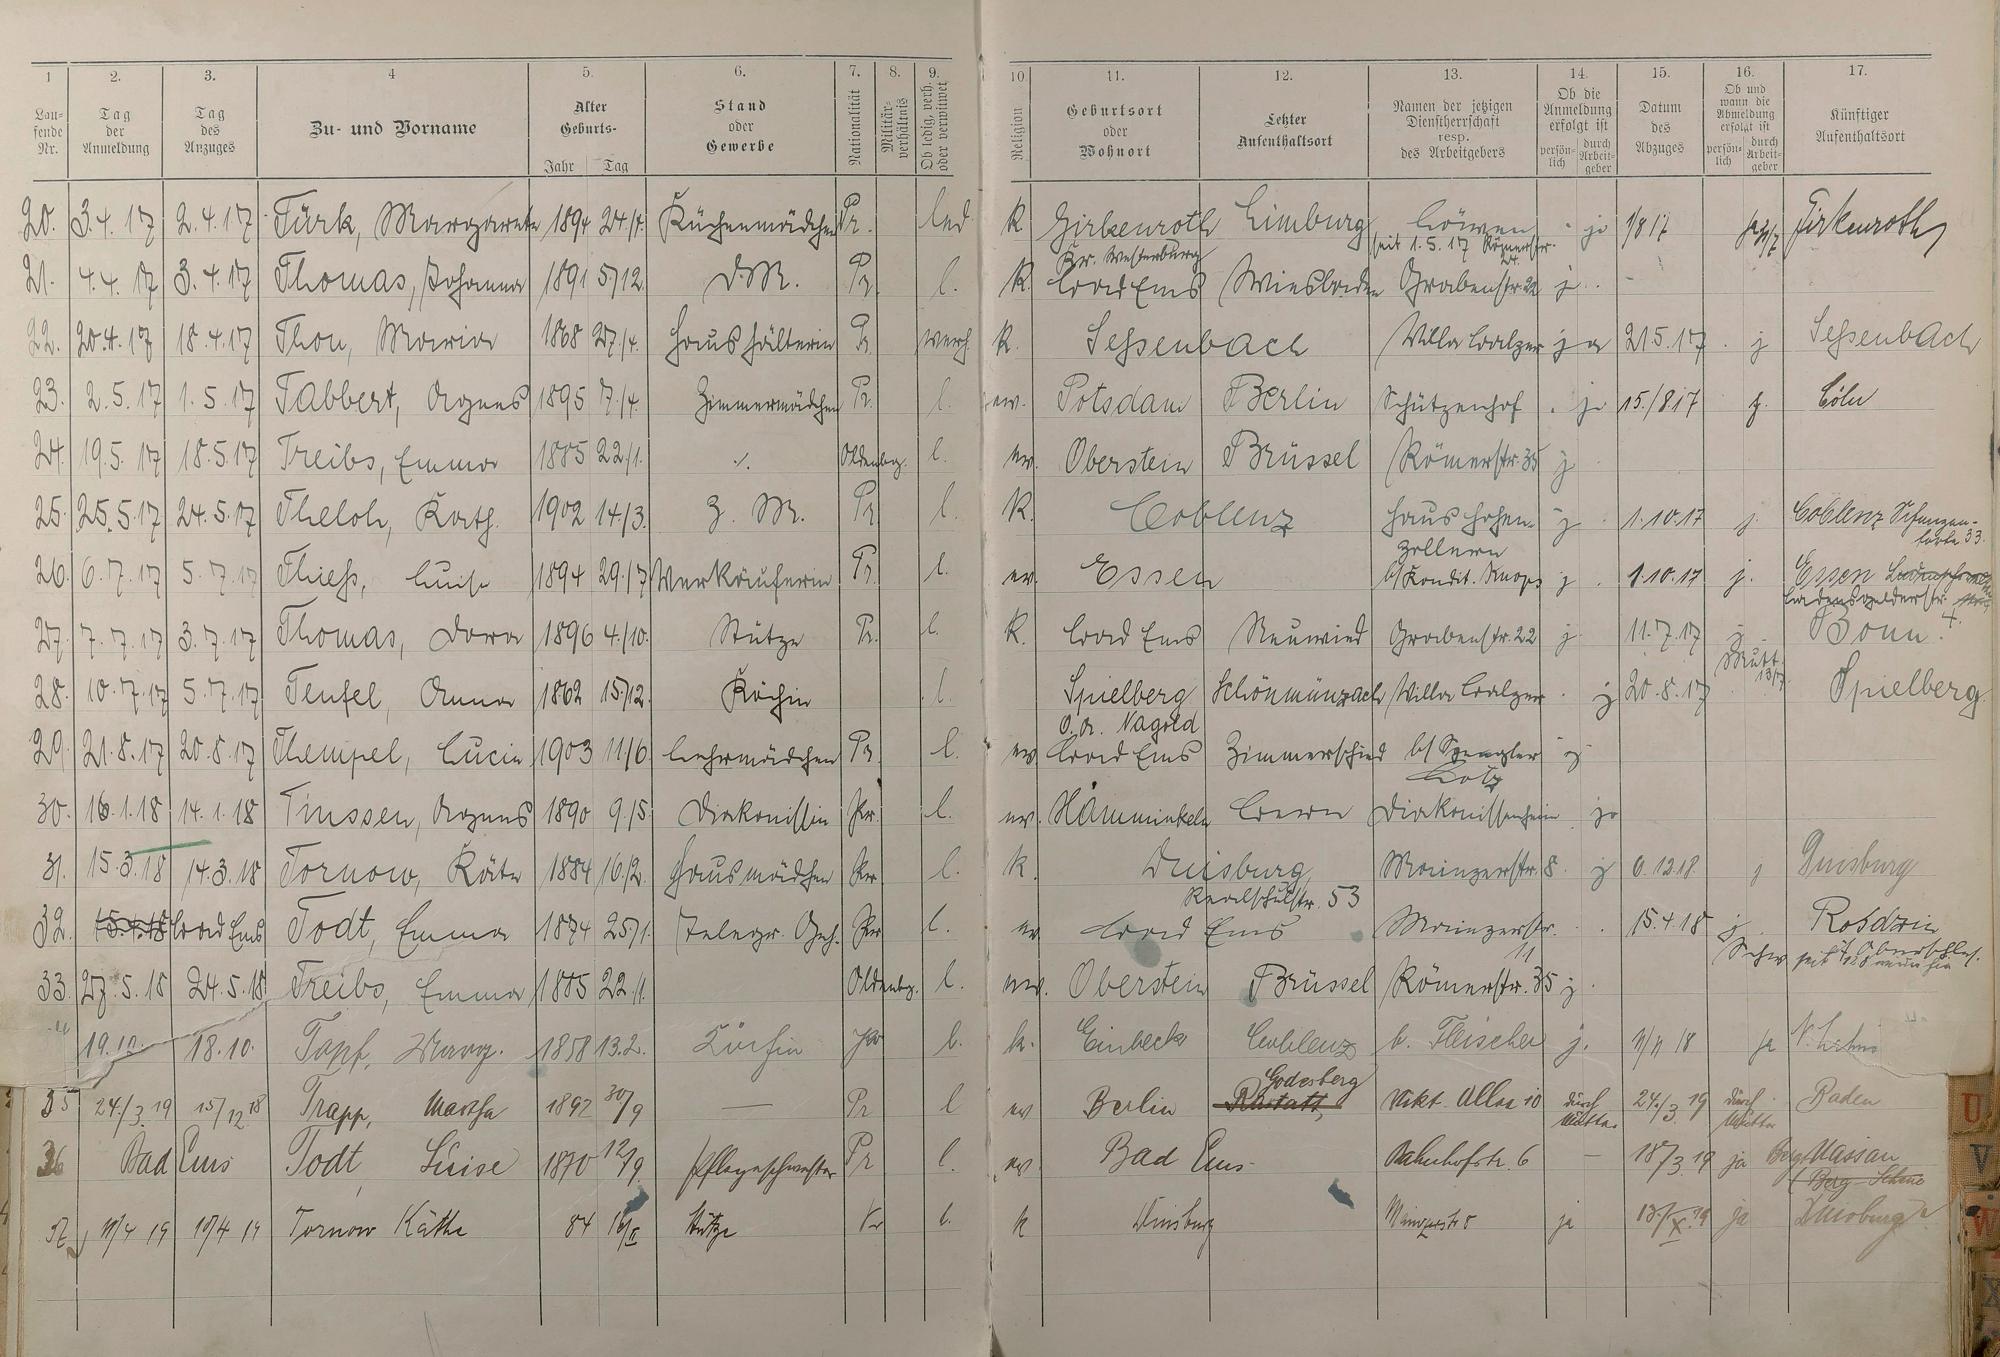 1 2. 3. 4 5. 6. 7. 8. 9. 10 11. 12. 13. 14. 15. 16. 17.
Lau-fende Nr. Tag der Anmeldung Tag des Anzuges Zu- und Vorname Alter Geburts- Jahr Tag Stand oder Gewerbe Nationalität Militär-verhältnis Ob ledig, verh. oder verwitwet Religion Geburtsort oder Wohnort Letzter Aufenthaltsort Namen der jetzigen Dienstherrschaft resp. des Arbeitgebers Ob die Anmeldung erfolgt ist persön-lich durch Arbeit-geber Datum des Abzuges Ob und wann die Abmeldung erfolgt ist persön-lich durch Arbeit-geber Künftiger Aufenthaltsort
20. 3.4.17 2.4.17 Türk, Margarete 1894 24/7. Küchenmädchen Pr. led K Girkenroth Limburg Löwen ja 1/8 17 Girkenroth
Kr. Westerburg seit 1.5.17 Römerstr. 24.
21. 4.4.17 3.4.17 Thomas, Johanna 1891 5/12. D.M. Pr. l. K. Bad Ems Wiesbaden Grabenstr. 22 j.
22. 20.4.17 18.4.17 Thon, Maria 1868 27/4. Haushälterin Pr. verh. K. Sessenbach Villa Balzer ja 21.5.17 j Sessenbach
23. 2.5.17 1.5.17 Tabbert, Agnes 1895 7/4. Zimmermädchen Pr. l. ev. Potsdam Berlin Schützenhof ja 15./8 17 j. Cöln
24. 19.5.17 18.5.17 Treibs, Emma 1885 22/1. ./. Oldenbg. l. ev. Oberstein Brüssel Römerstr. 35 j
25. 25.5.17 24.5.17 Theloh, Kath. 1902 14/3. Z. M. Pr l. K. Coblenz Haus Hohen- j 1.10.17 j. Coblenz Schanzen-
zollern 33.
26. 6.7.17 5.7.17 Thiess, Luise 1894 29/7 Verkäuferin Pr. l. ev. Essen b/ Kondit. Knops j 1.10.17 j. Essen
27. 7.7.17 3.7.17 Thomas, Dora 1896 4/10. Stütze Pr. l. K. Bad Ems Neuwied Grabenstr. 22 j 11.7.17 j Bonn.
Mutt. 13/7
28. 10.7.17 5.7.17 Teufel, Anna 1862 15/12. Köchin l. Spielberg Schönmünzach Villa Balzer j 20.8.17 Spielberg
O.A. Nagold
29. 21.8.17 20.8.17 Thempel, Lucie 1903 11/6 Lehrmädchen Pr. l. ev Bad Ems Zimmerschied b/ Spengler j
Lotz
30. 16.1.18 14.1.18 Tinssen, Agnes 1890 9/5. Diakonissin Pr. l. ev. Hamminkeln Diakonissenheim ja
31. 15.3.18 14.3.18 Tornow, Käte 1884 16/2. Hausmädchen Pr. l. k. Duisburg Mainzerstr. 8. j 6.12.18. j Duisburg
Realschulstr. 53
32. 15.4.18 Bad Ems Todt, Emma 1874 25/1. Telegr. Geh. Pr l. ev Bad Ems Mainzerstr. 15.4.18 j. Rosdzin
11 Schw Oberschles.
33. 27.5.18 24.5.18 Treibs, Emma 1885 22/1. Oldenbg. l. ev. Oberstein Brüssel Römerstr. 35 j.
19.10. 18.10. Topf, Marg. 1858 13.2. Köchin Pr l. k. Einbeck Coblenz b. Fleischer j. 11/11 18 ja
Godesberg
35 24./3.19 15/12 18 Trapp, Martha 1892 30/9 — Pr l ev Berlin Rastatt, Vikt. Allee 10 durch Mutter 24./3. 19 durch Mutter Baden
36 Bad Ems Todt, Luise 1870 12/9. Pflegeschwester Pr l. ev. Bad Ems Bahnhofstr. 6 — 18/3.19 ja Berg Nassau
37 11/4 19 10/4 19 Tornow Käthe 84 16/II Stütze Pr l. k Duisburg Mainzerstr 8 ja 13/X.19 ja Duisburg
U
V
W
X